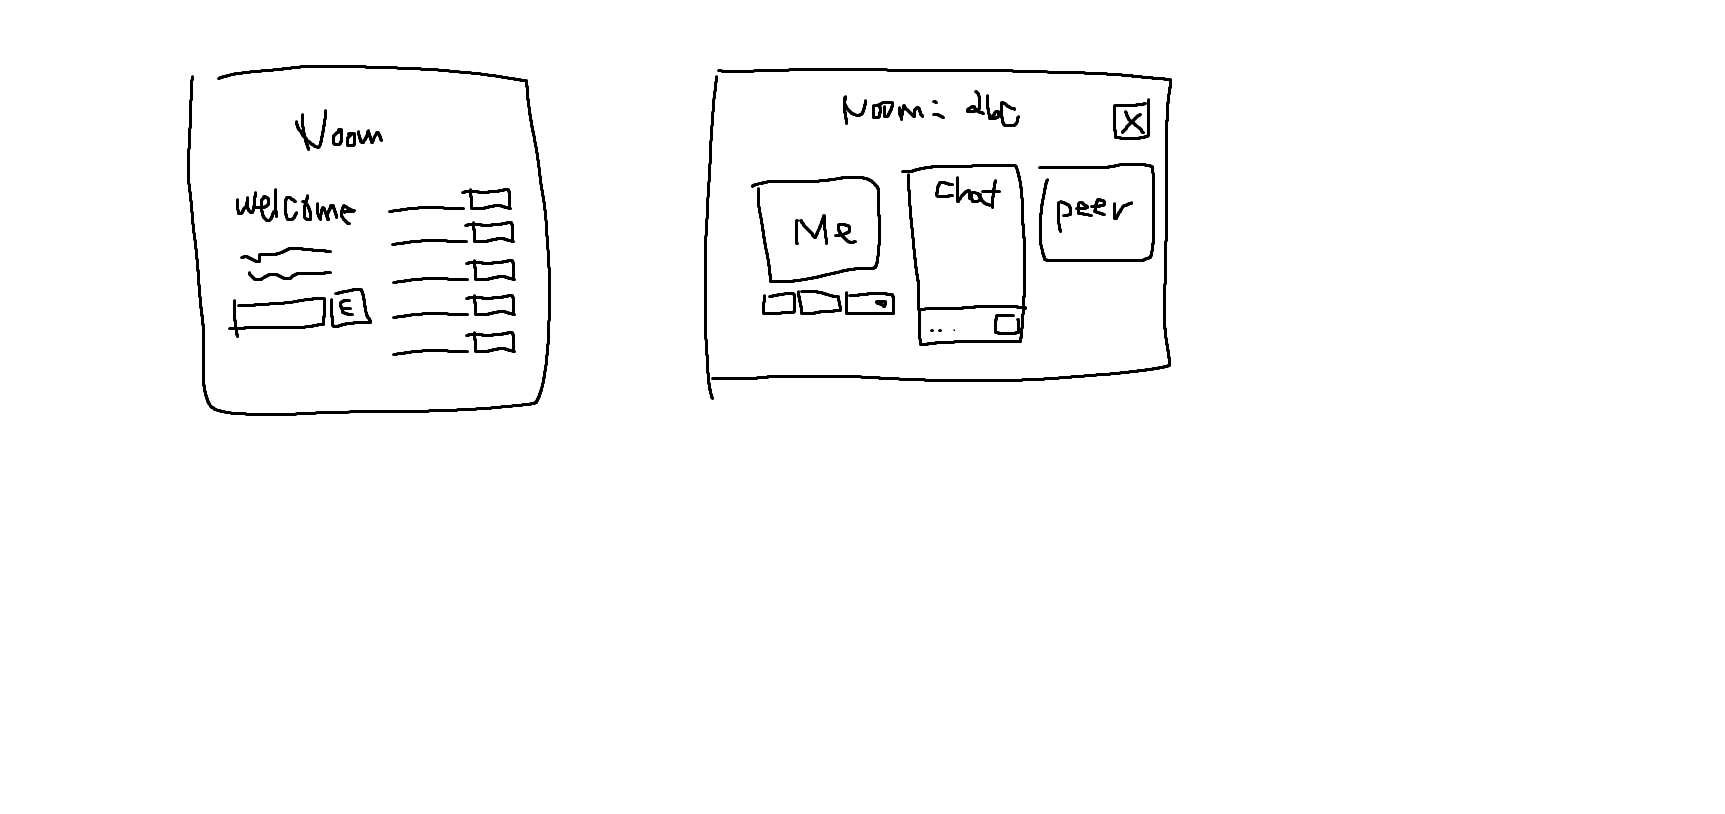 Noom
welcome
E
Noom: abc
X
Me
Chat
peer
...